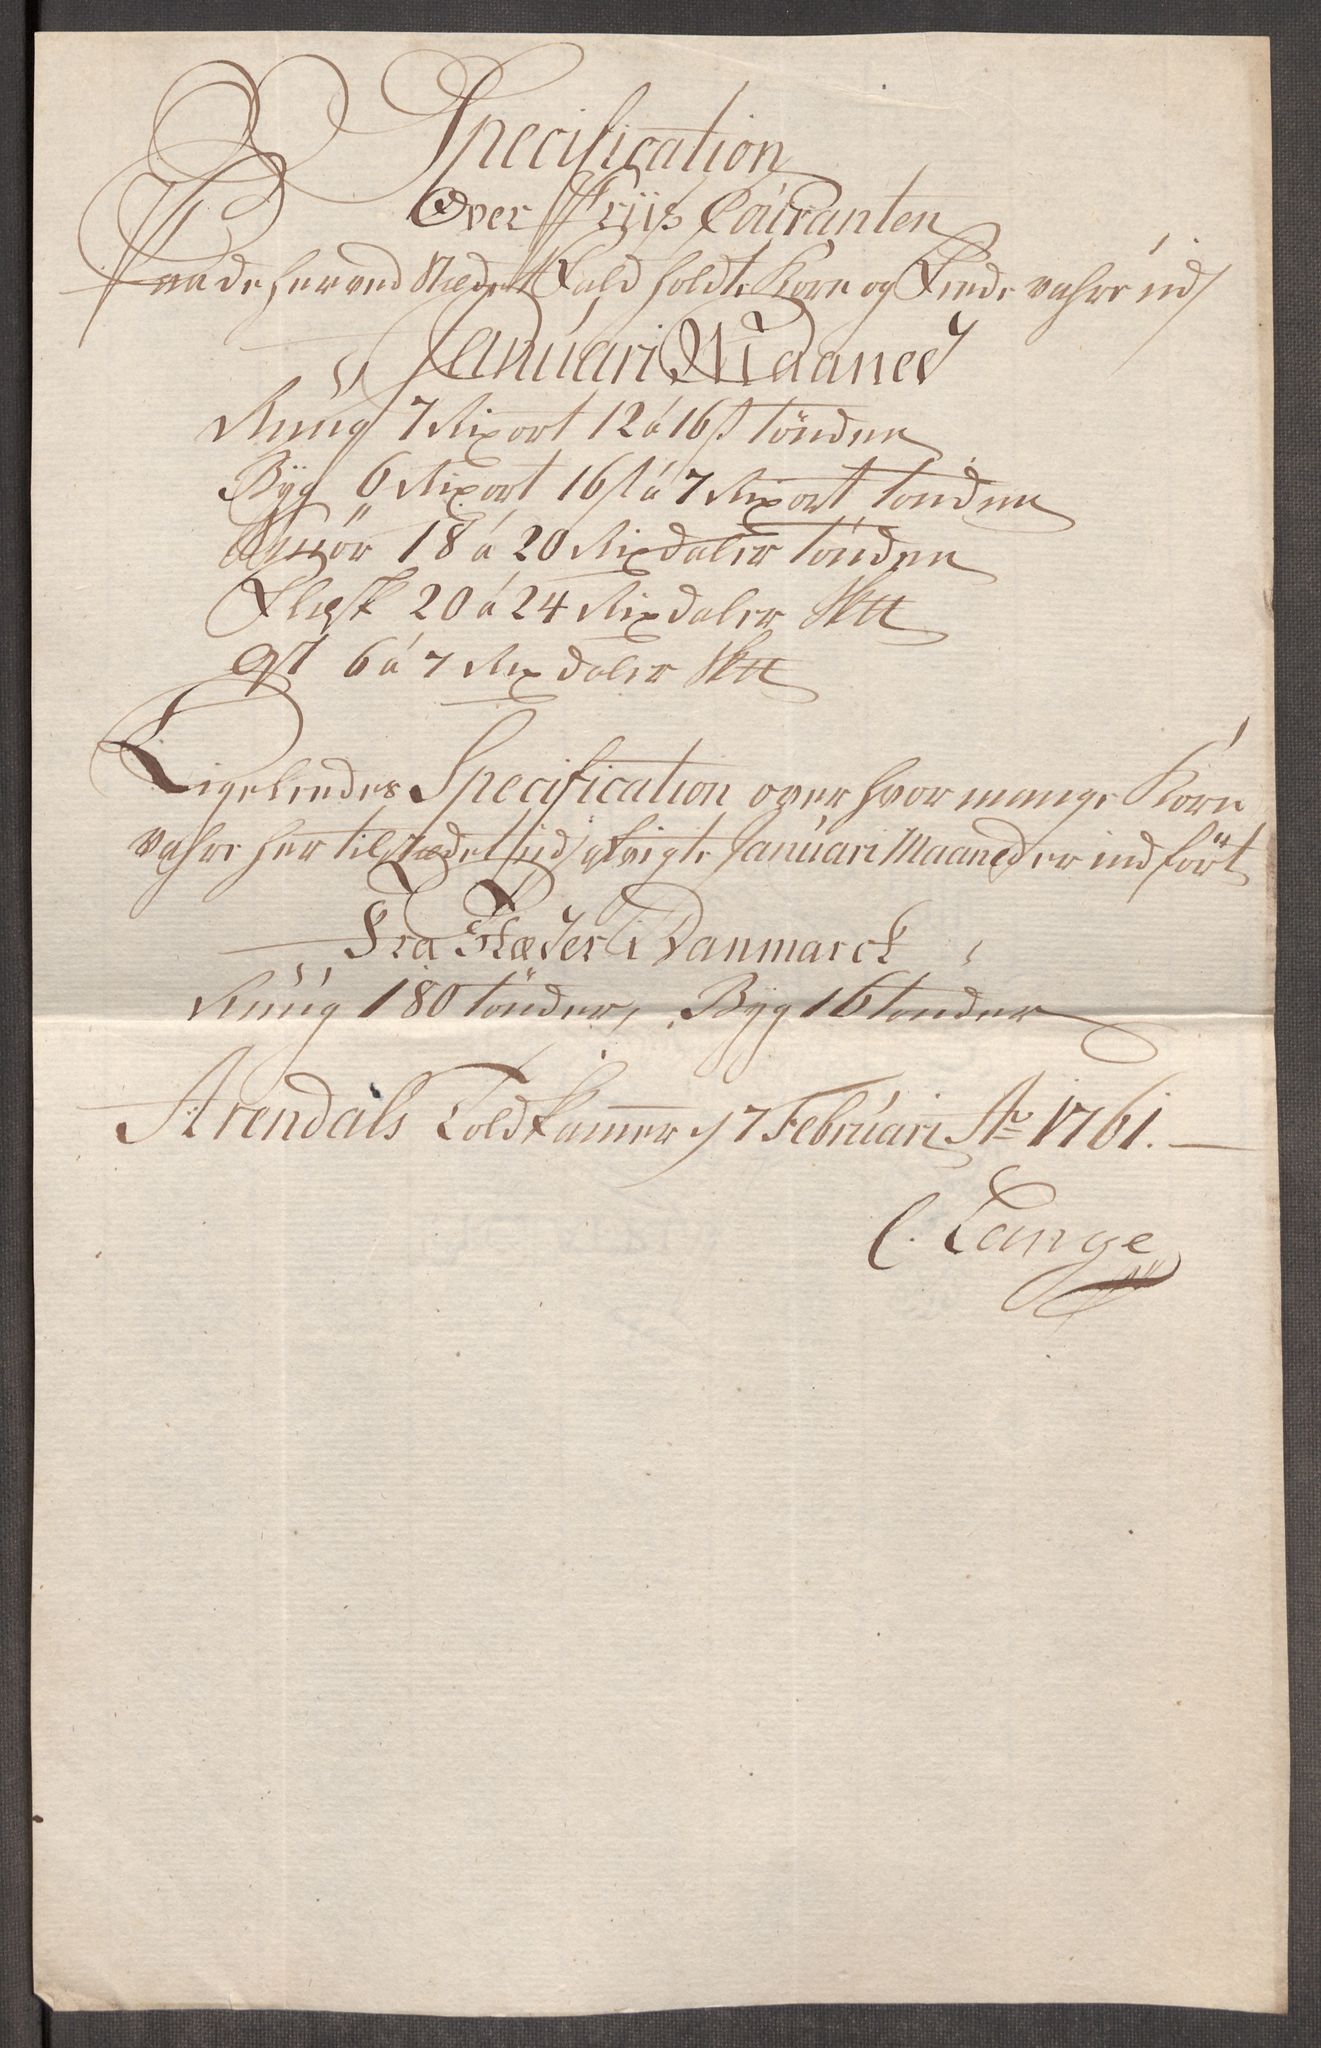 Specification
Over Prÿs Couranten
Paa de her ved Stædet Fald holdte Korn og Fæde vahre udj
Januari Maaned
Rúúg 7 Rixort 12 á 16 s tönden
Byg 6 Rixort 16 s á 7 Rixort tonden
Smör 18 á 20 Rixdaler tonden
Flesk 20 á 24 Rixdaler Sktt
Ost 6 á 7 Rixdaler Sktt
Ligeledes Specification over hvor mange Korn
vahre her til Stædet udj afvigte Januari Maaned er indfört
Fra Stæder i Danmarck
Rúúg 180 tönder, Byg 16 tonder
Arendals Toldkammer d 7 Februari Ao 1761.
C. Lange